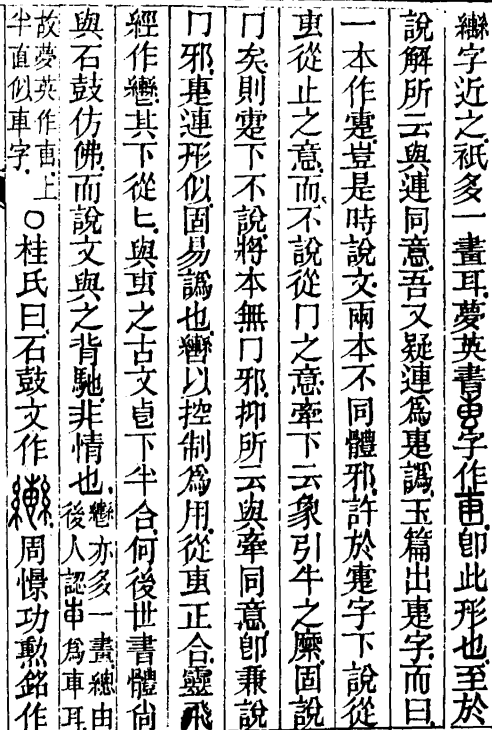 字近之祇多一畫耳夢英書叀字作
說解所云與連同意吾又疑連爲疌譌玉篇出疌字而曰
一本作疐豈是時說文兩本不同體邪許於疐字下說從
叀從止之意而不說從冂之意牽下云象引牛之縻固說
冂矣則疐下不說將本無冂邪抑所云與牽同意卽兼說
冂邪疌連形似固易譌也轡以控制爲用從叀正合靈飛
經作轡其下從匕與叀之古文㠯下半合何後世書體尙
與石鼓仿佛而說文與之背馳非情也轡亦多一畫總由
後人認叀爲車耳
故夢英作叀上
半直似車字○桂氏曰石鼓文作 周憬功勲銘作